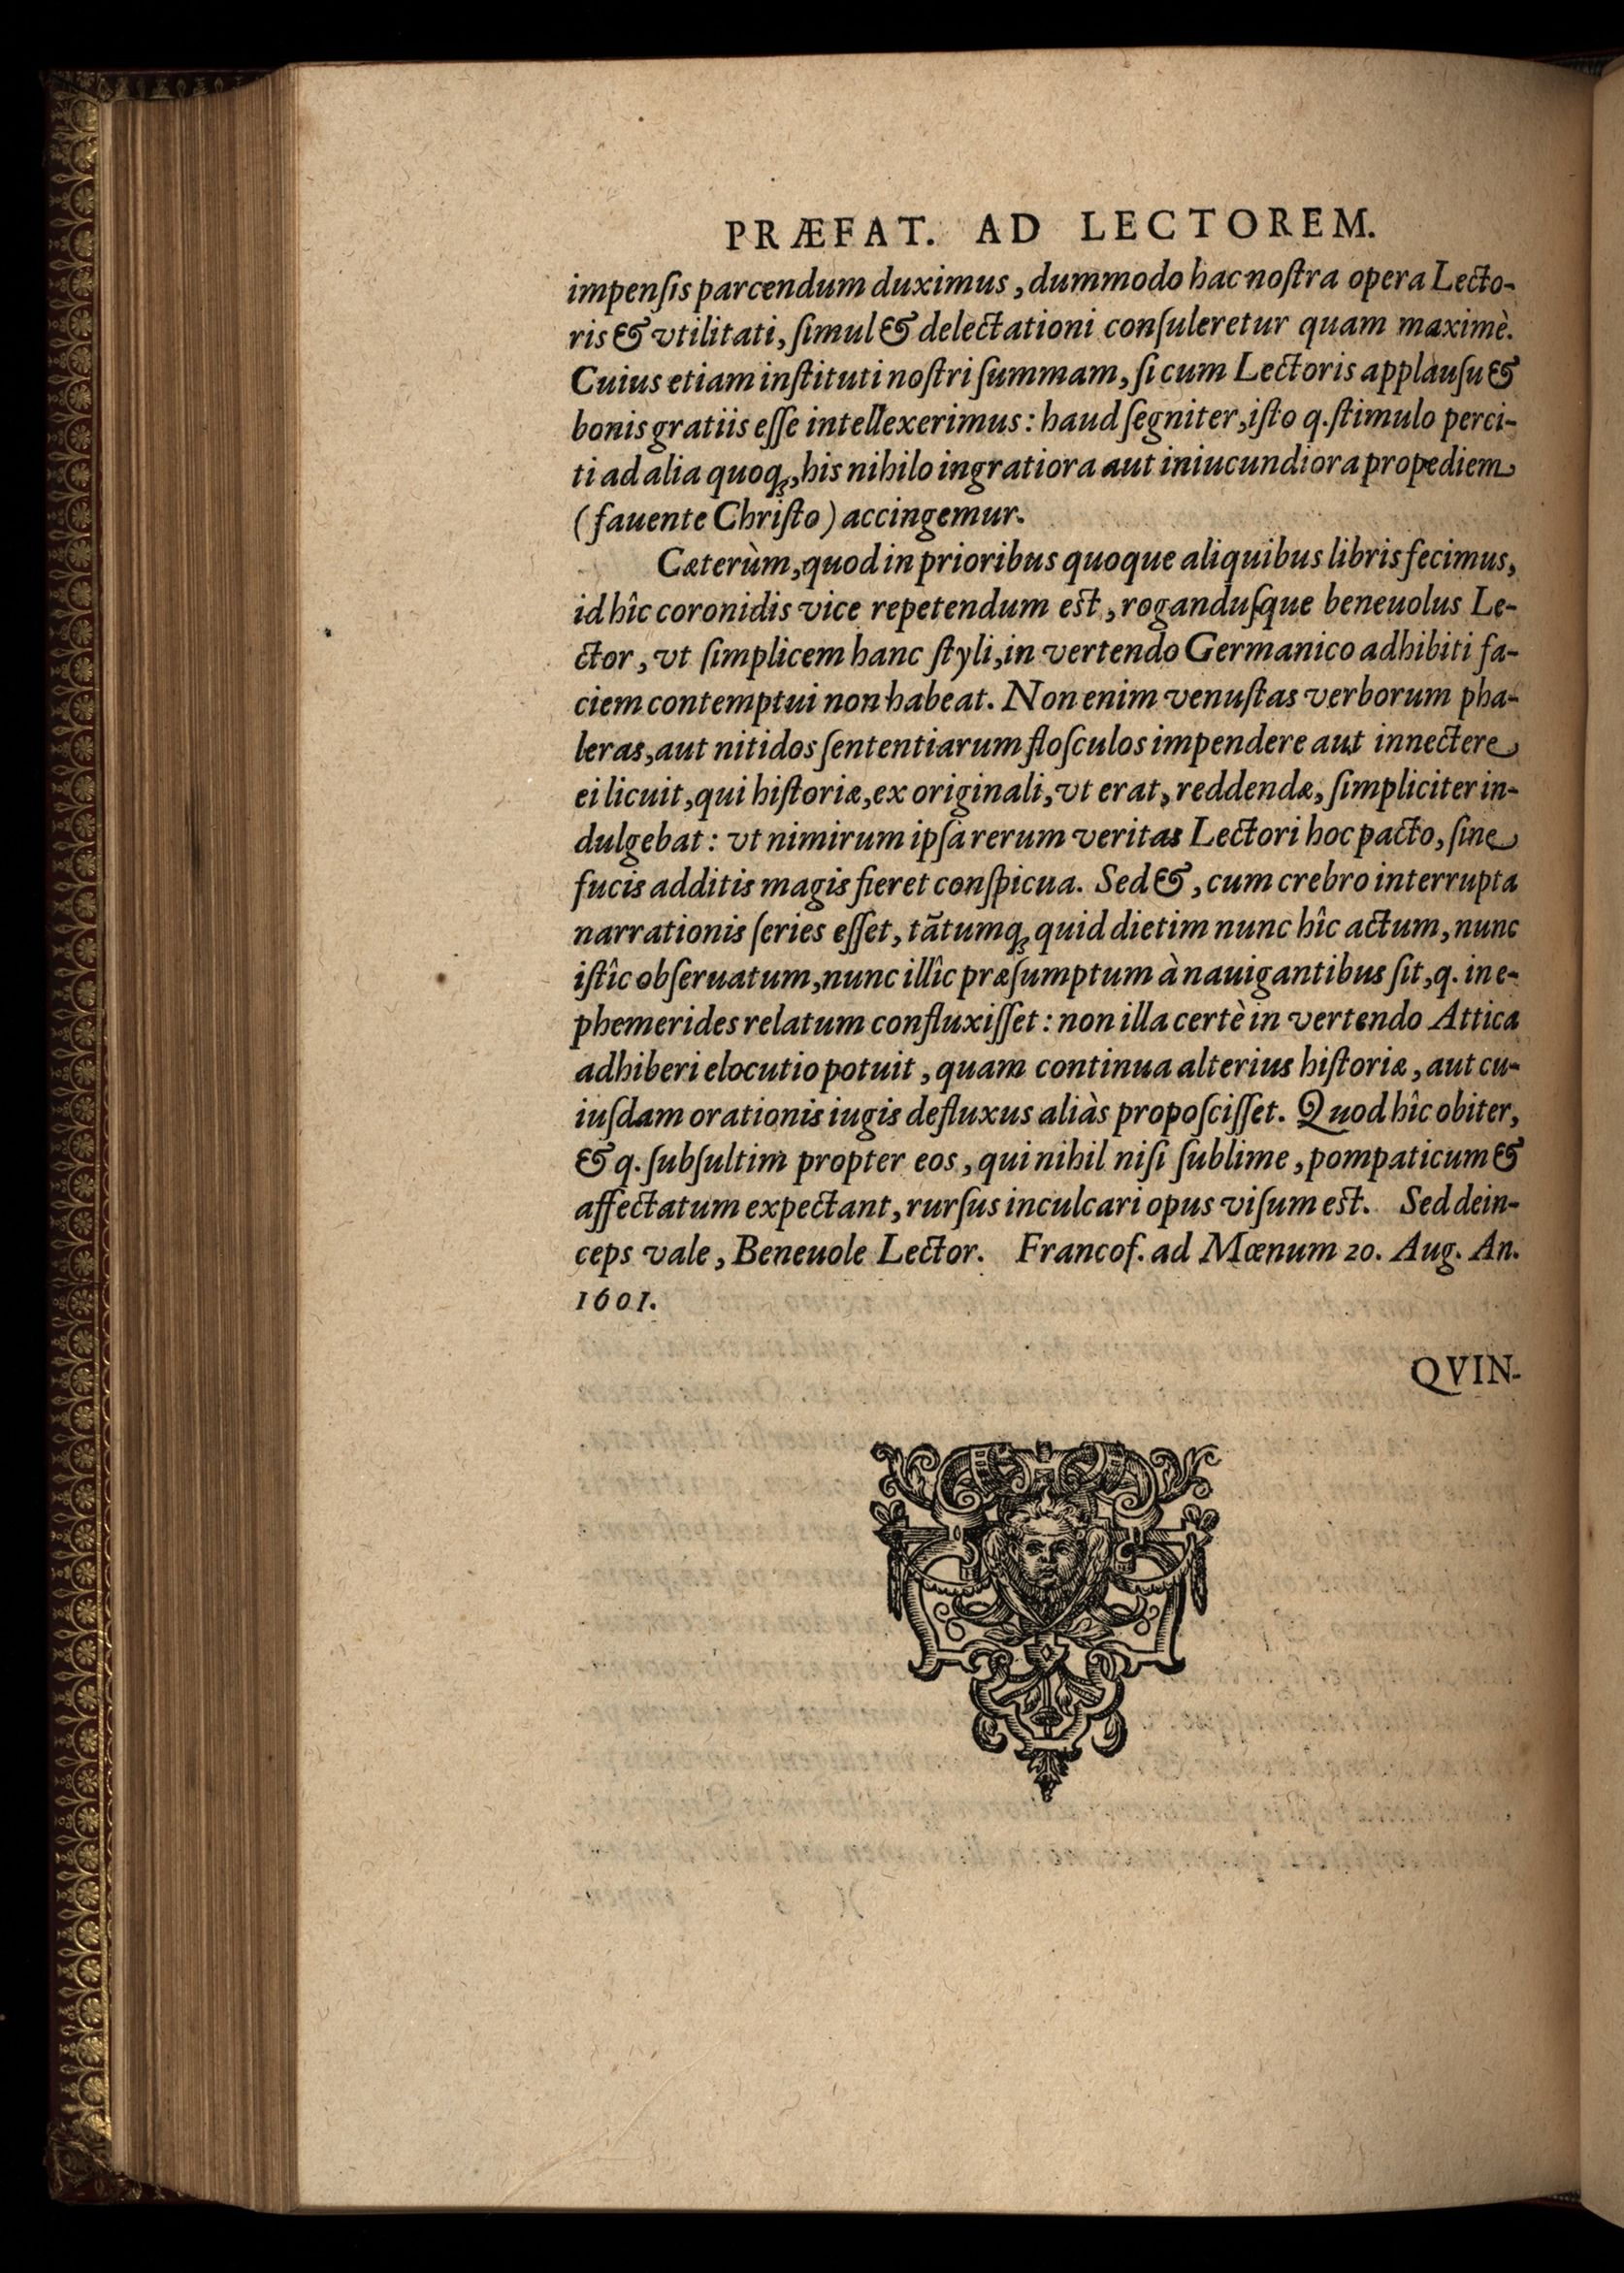 PRÆFAT. AD LECTOREM.
impenſis parcendum duximus, dummodo hac noſtra opera Lecto-
ris & vtilitati, ſimul & delectationi conſuleretur quam maximè.
Cuius etiam inſtituti noſtri ſummam, ſi cum Lectoris applauſu &
bonis gratiis eſſe intellexerimus: haud ſegniter, iſto q. ſtimulo perci-
ti ad alia quoq;, his nihilo ingratiora aut iniucundiora propediem
(fauente Chriſto) accingemur.
Cæterùm, quod in prioribus quoque aliquibus libris fecimus,
id hîc coronidis vice repetendum eſt, roganduſque beneuolus Le-
ctor, vt ſimplicem hanc ſtyli, in vertendo Germanico adhibiti fa-
ciem contemptui non habeat. Non enim venuſtas verborum pha-
leras, aut nitidos ſententiarum floſculos impendere aut innectere
ei licuit, qui hiſtoriæ, ex originali, vt erat, reddendæ, ſimpliciter in-
dulgebat: vt nimirum ipſa rerum veritas Lectori hoc pacto, ſine
fucis additis magis fieret conſpicua. Sed &, cum crebro interrupta
narrationis ſeries eſſet, tãtumq; quid dietim nunc hîc actum, nunc
iſtîc obſeruatum, nunc illîc præſumptum à nauigantibus ſit, q. in e-
phemerides relatum confluxiſſet: non illa certè in vertendo Attica
adhiberi elocutio potuit, quam continua alterius hiſtoriæ, aut cu-
iuſdam orationis iugis defluxus aliàs propoſciſſet. Quod hîc obiter,
& q. ſubſultim propter eos, qui nihil niſi ſublime, pompaticum &
affectatum expectant, rurſus inculcari opus viſum eſt. Sed dein-
ceps vale, Beneuole Lector. Francof. ad Mœnum 20. Aug. An.
1601.
QVIN-